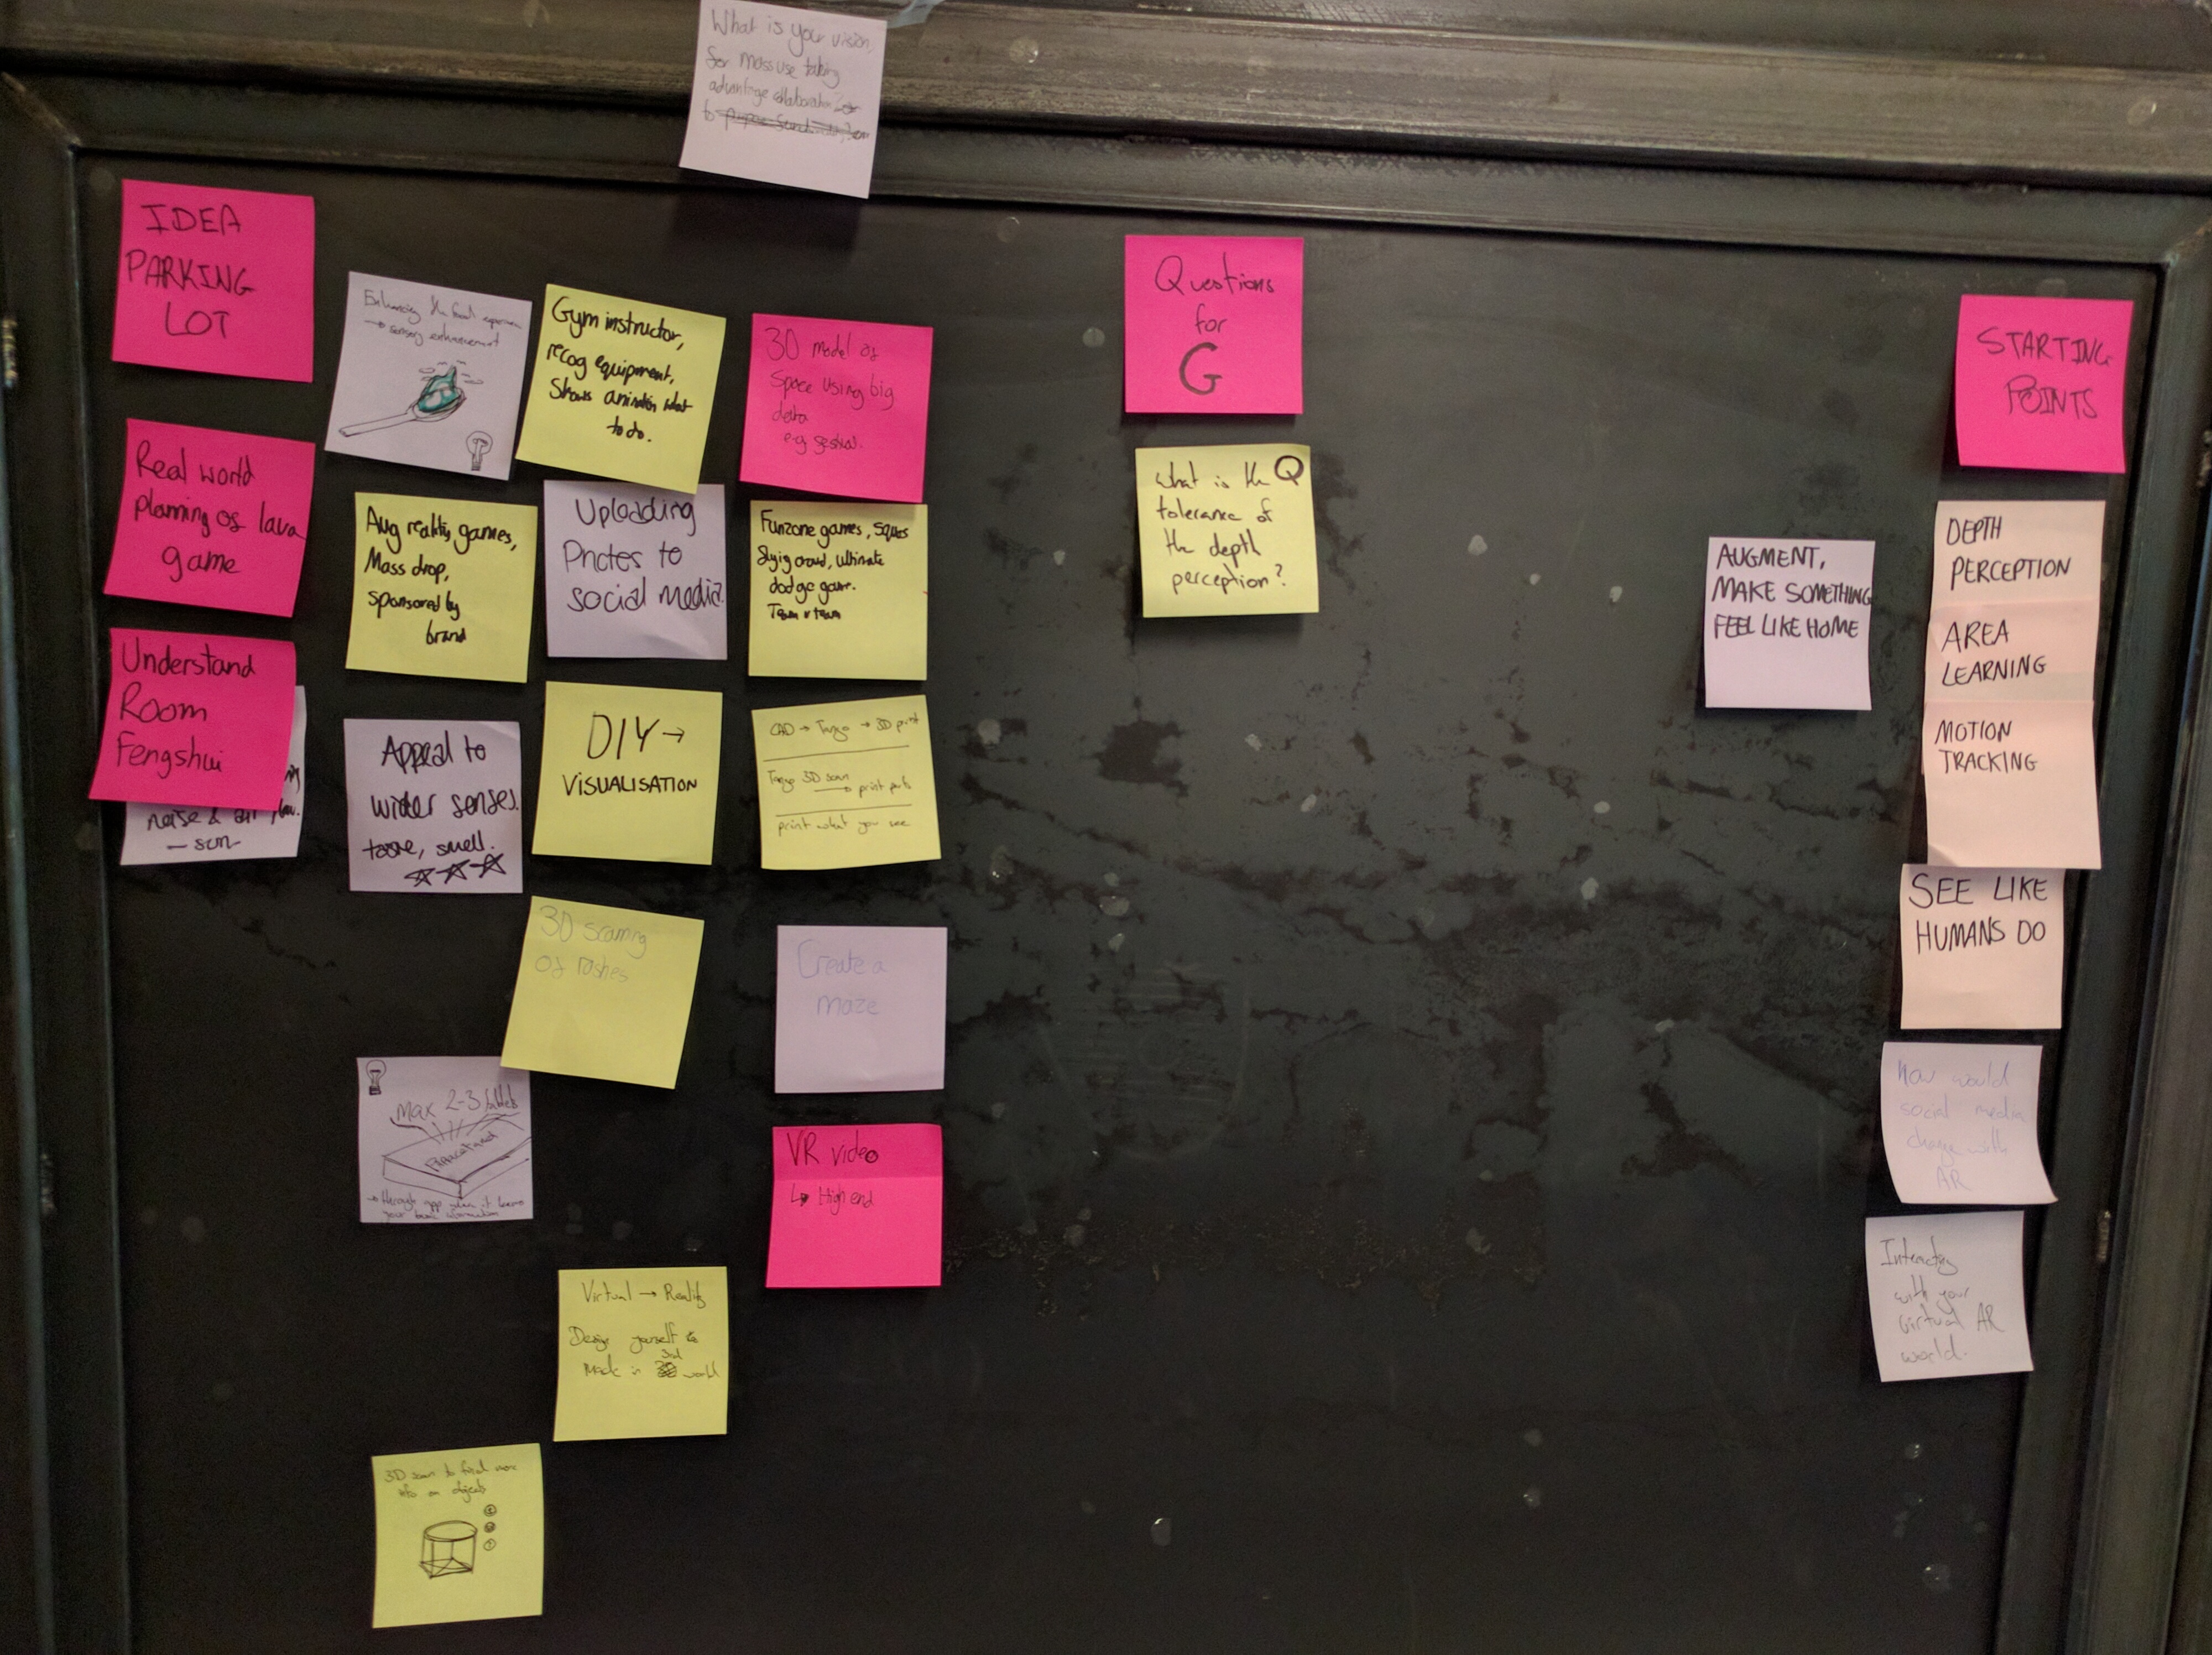 What is your vision,
for mass use taking
advantage collaboration
to
IDEA
PARKING
LOT
Real world
planning of lava
game
Understand
Room
Fengshui
noise & air
- sun -
Enhancing the food
→ sensory enhancement
Aug reality games,
Mass drop,
Sponsored by
brand
Appeal to
wider senses.
taste, smell.
Max 2-3 tablets
→ through app when it learns
your basic information
3D scan to find more
info on objects
Gym instructor,
recog equipment,
Shows animation what
to do.
Uploading
Photos to
social media
DIY →
VISUALISATION
3D scanning
Of rashes
Virtual → Reality
Design yourself &
Made in real world
3D model of
Space using big
data
e.g. festival.
Funzone games,
flying crowd, ultimate
dodge game.
Team v team
CAD → Tango → 3D print
Tango 3D scan
→ print parts
print what you see
Create a
maze
VR video
↳ High end
Questions
for
G
What is the Q
tolerance of
the depth
perception?
STARTING
POINTS
AUGMENT,
MAKE SOMETHING
FEEL LIKE HOME
DEPTH
PERCEPTION
AREA
LEARNING
MOTION
TRACKING
SEE LIKE
HUMANS DO
How would
social media
change with
AR
Interacting
with your
virtual AR
world.